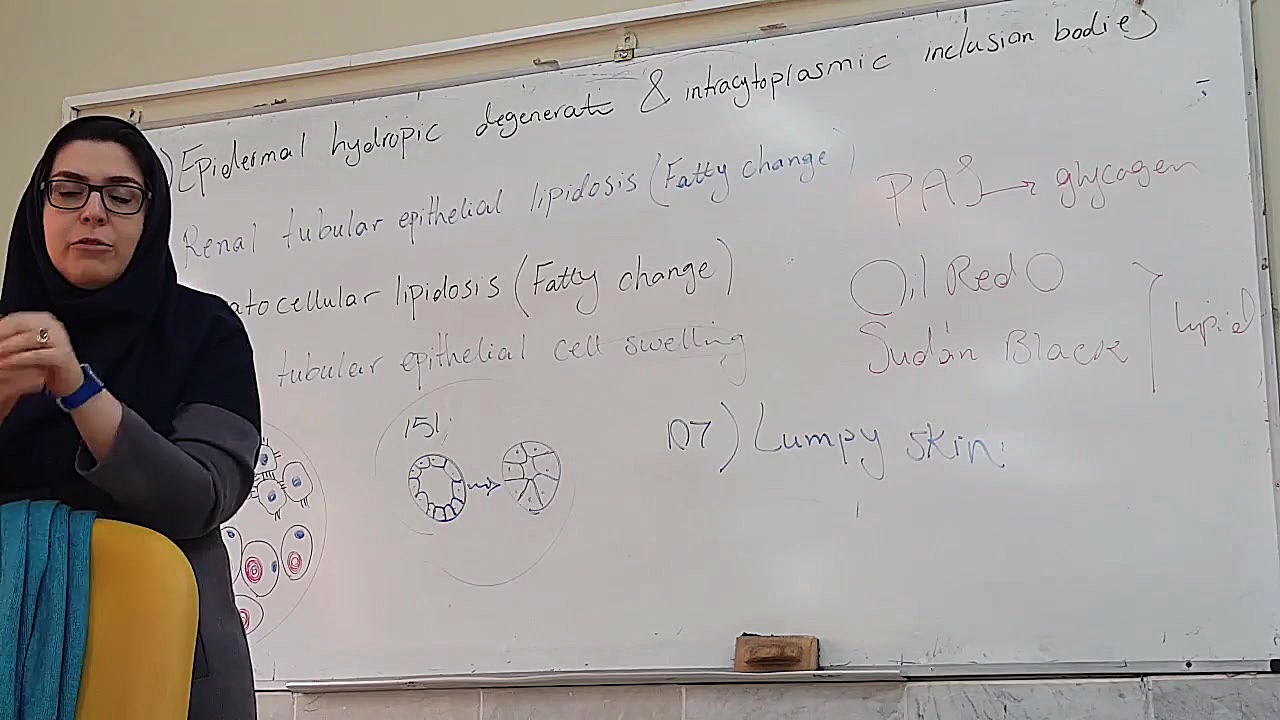 ) Epidermal hydropic degenerat & intracytoplasmic inclusion bodies
Renal tubular epithelial lipidosis (Fatty change)
atocellular lipidosis (Fatty change)
tubular epithelial cell swelling
PAS → glycogen
Oil Red O
Sudan Black
lipid
151;
107) Lumpy skin: